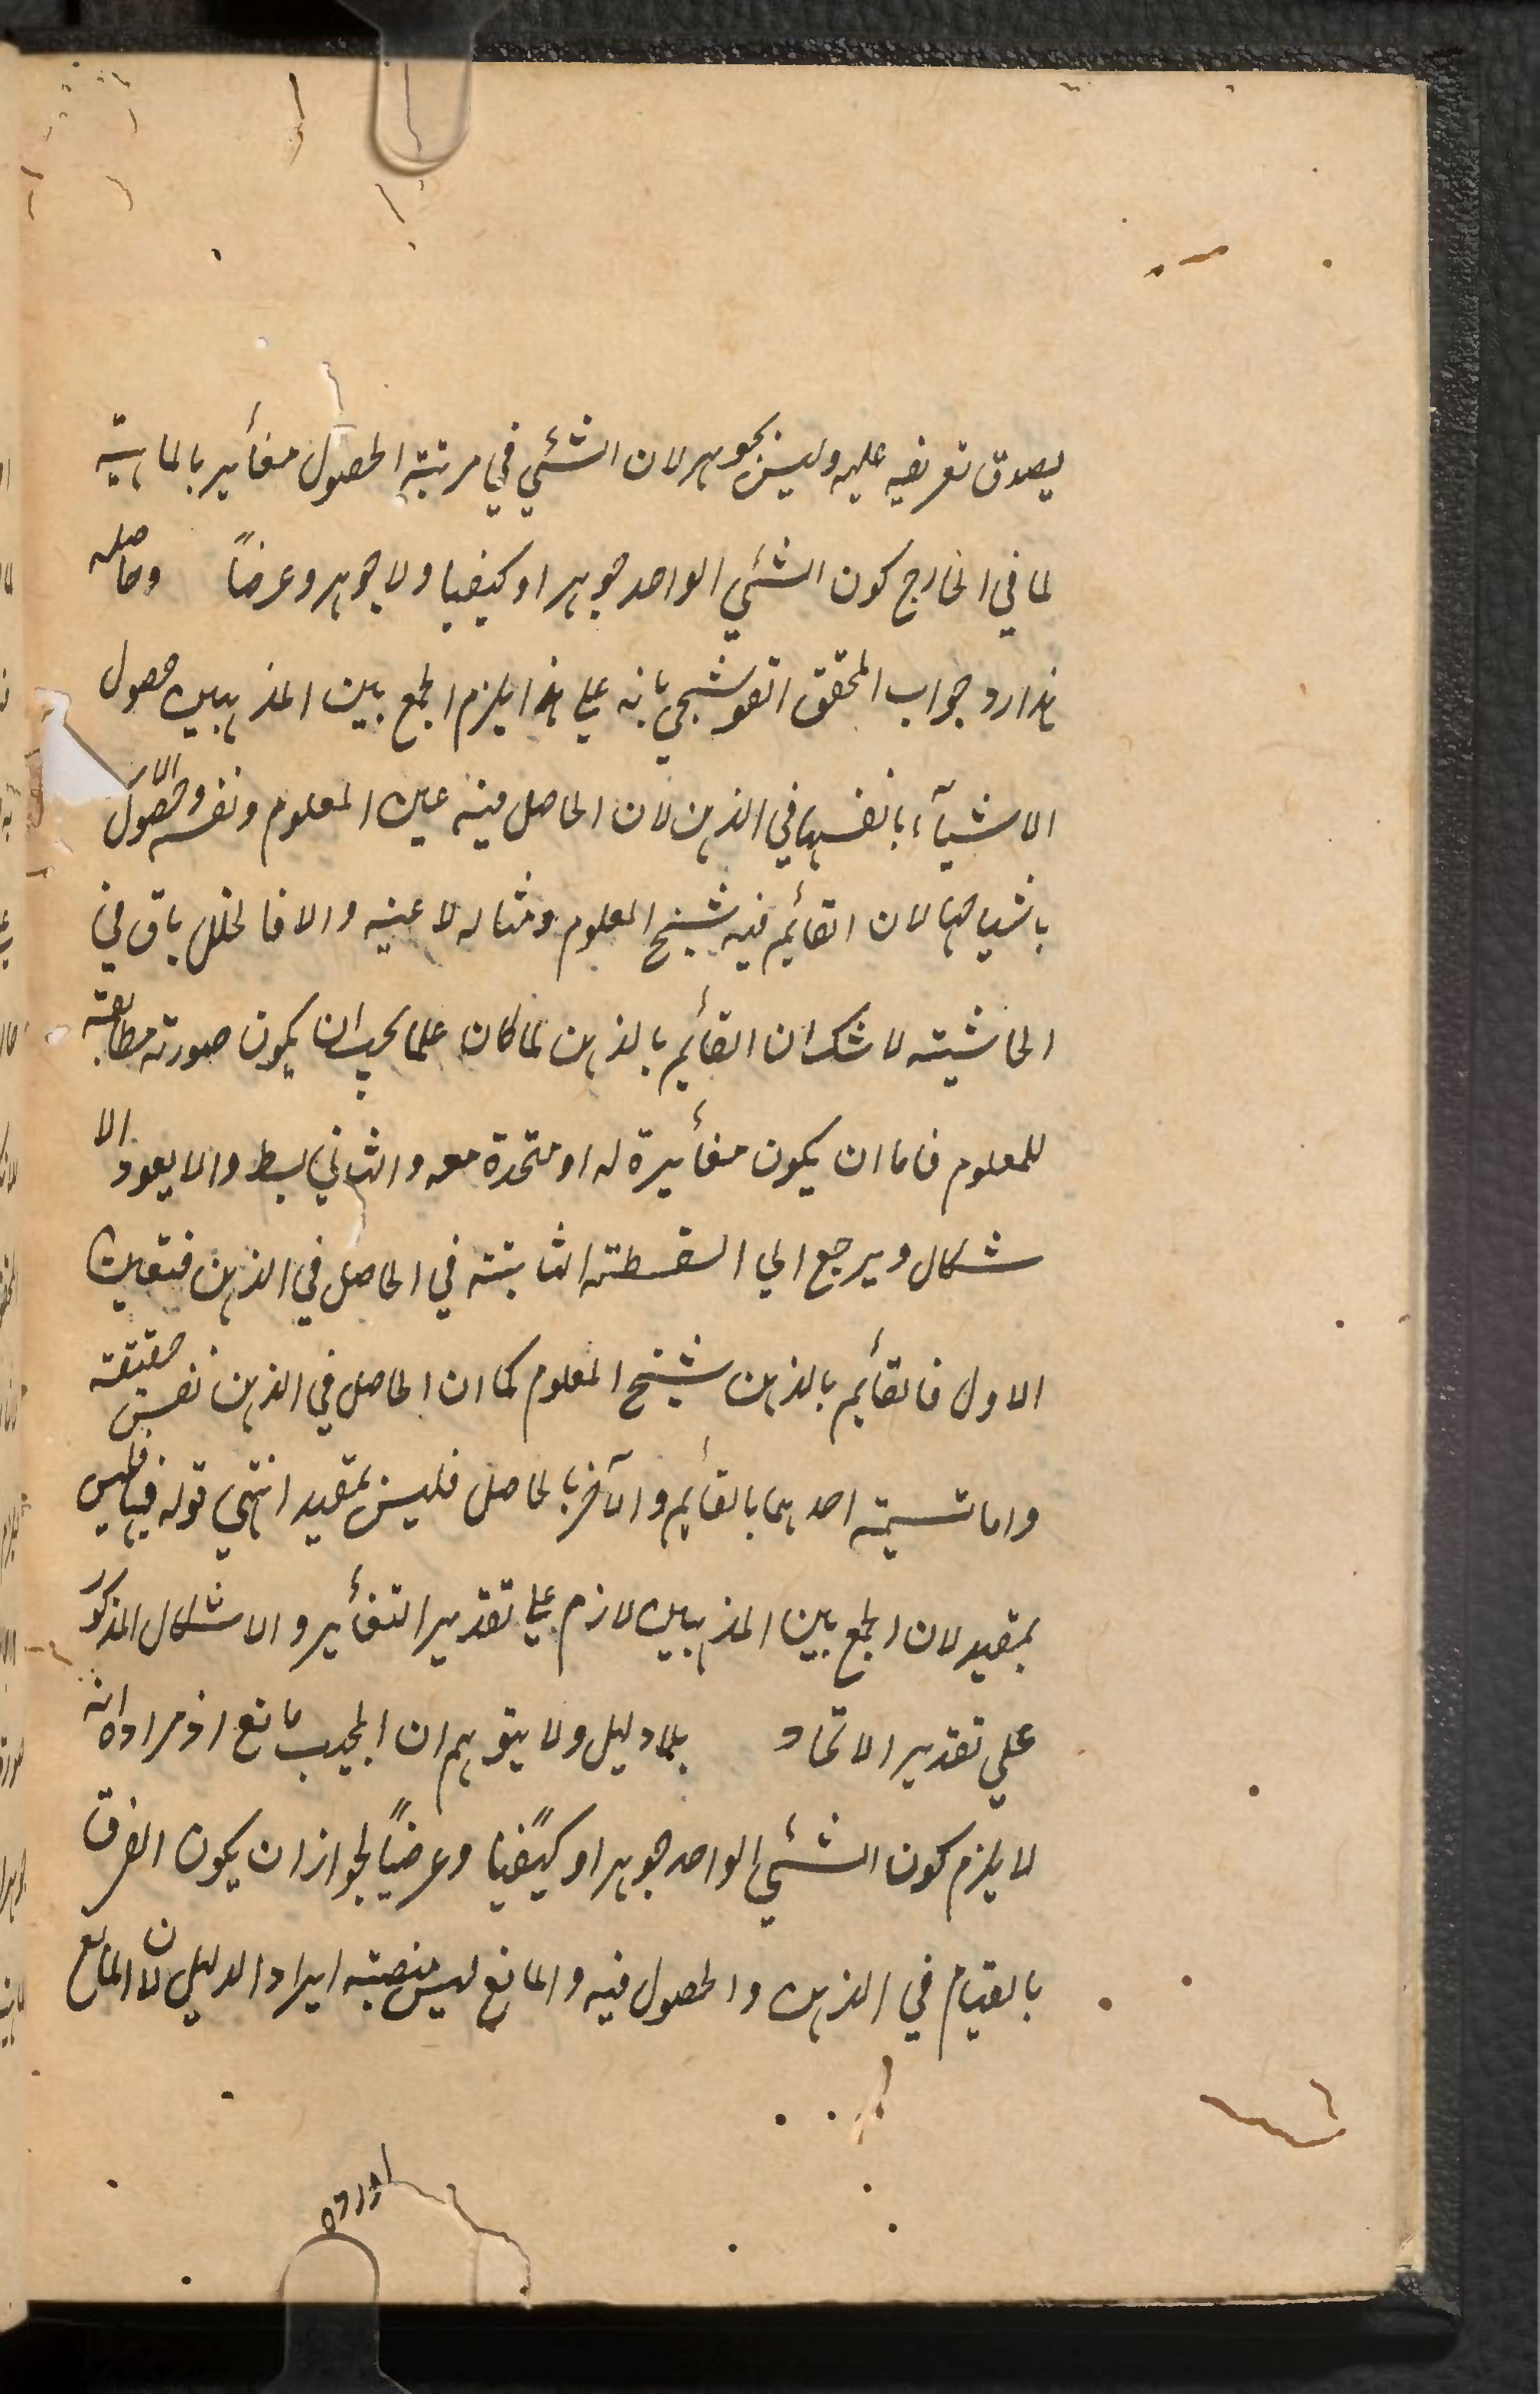 يصدق تعريفه عليه وليس بجوهر لان الشئي في مرتبة الحصول مغأير بالماهية
لما في الخارج كون الشئي الواحد جوهرا وكيفيا ولا جوهر وعرضاً وحاصله
هذا رد جواب المحقق القوشجي بانه علي هذا يلزم الجمع بين المذهبين حصول
الاشيآء بانفسها في الذهن لان الحاصل فيه عين المعلوم ونفسه وحصول
باشباحها لان القأيم فيه شبح المعلوم ومثاله لا عينه والا فالخلل باق في
الحاشيته لا شك ان القأيم بالذهن لما كان علما يجب ان يكون صورته مطابقة
للمعلوم فاما ان يكون مغأيرة له او متحدة معه والثاني بسط والا يعود الا
شكال ويرجع الي السفسطته الثابتته في الحاصل في الذهن فتعين
الاول فالقأيم بالذهن شبح المعلوم كما ان الحاصل في الذهن نفس حقيقته
واما تسيمته احدهما بالقأيم والآخر بالحاصل فليس بمفيد انتهي قوله فيها فليس
بمفيد لان الجمع بين المذهبين لازم علي تقدير التغأير والاشكال المذكور
علي تقدير الاتحاد بلا دليل ولا يتوهم ان المجيب مانع اذ مراده انه
لا يلزم كون الشئي الواحد جوهرا وكيًفيا وعرضياً لجواز ان يكون الفرق
بالقيام في الذهن والحصول فيه والمانع ليس منصبته ايراد الدليل لان المانع